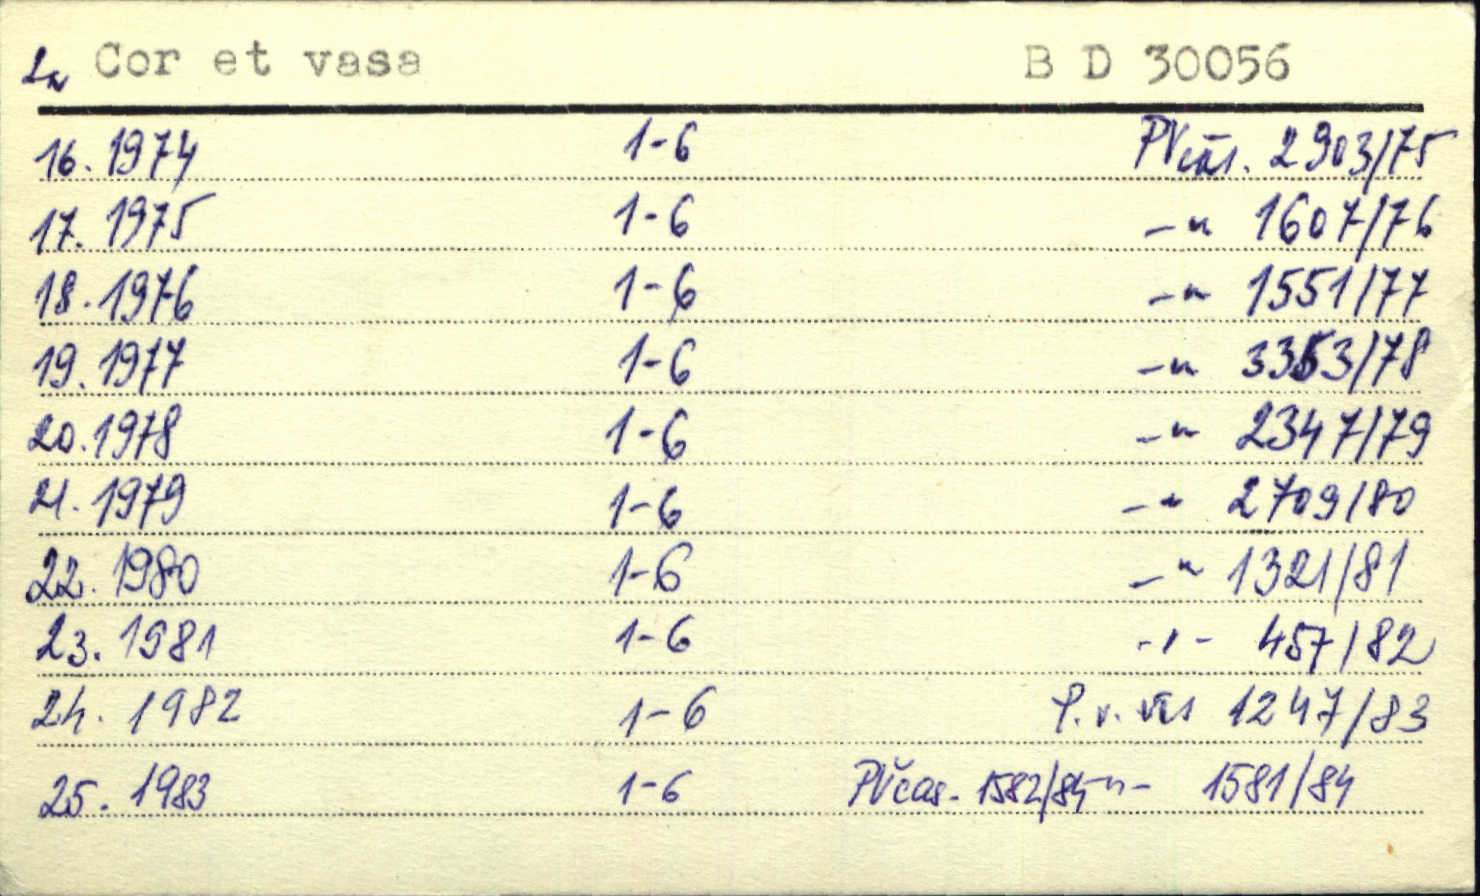 2a Cor et vasa B D 30056
16. 1974 1-6 PVčas. 2903/75
17. 1975 1-6 -"- 1607/76
18. 1976 1-6 -"- 1551/77
19. 1977 1-6 -"- 3353/78
20. 1978 1-6 -"- 2347/79
21. 1979 1-6 -"- 2709/80
22. 1980 1-6 -"- 1321/81
23. 1981 1-6 -"- 457/82
24. 1982 1-6 P.v. 1247/83
25. 1983 1-6 PVčas. 1582/84 -"- 1581/84